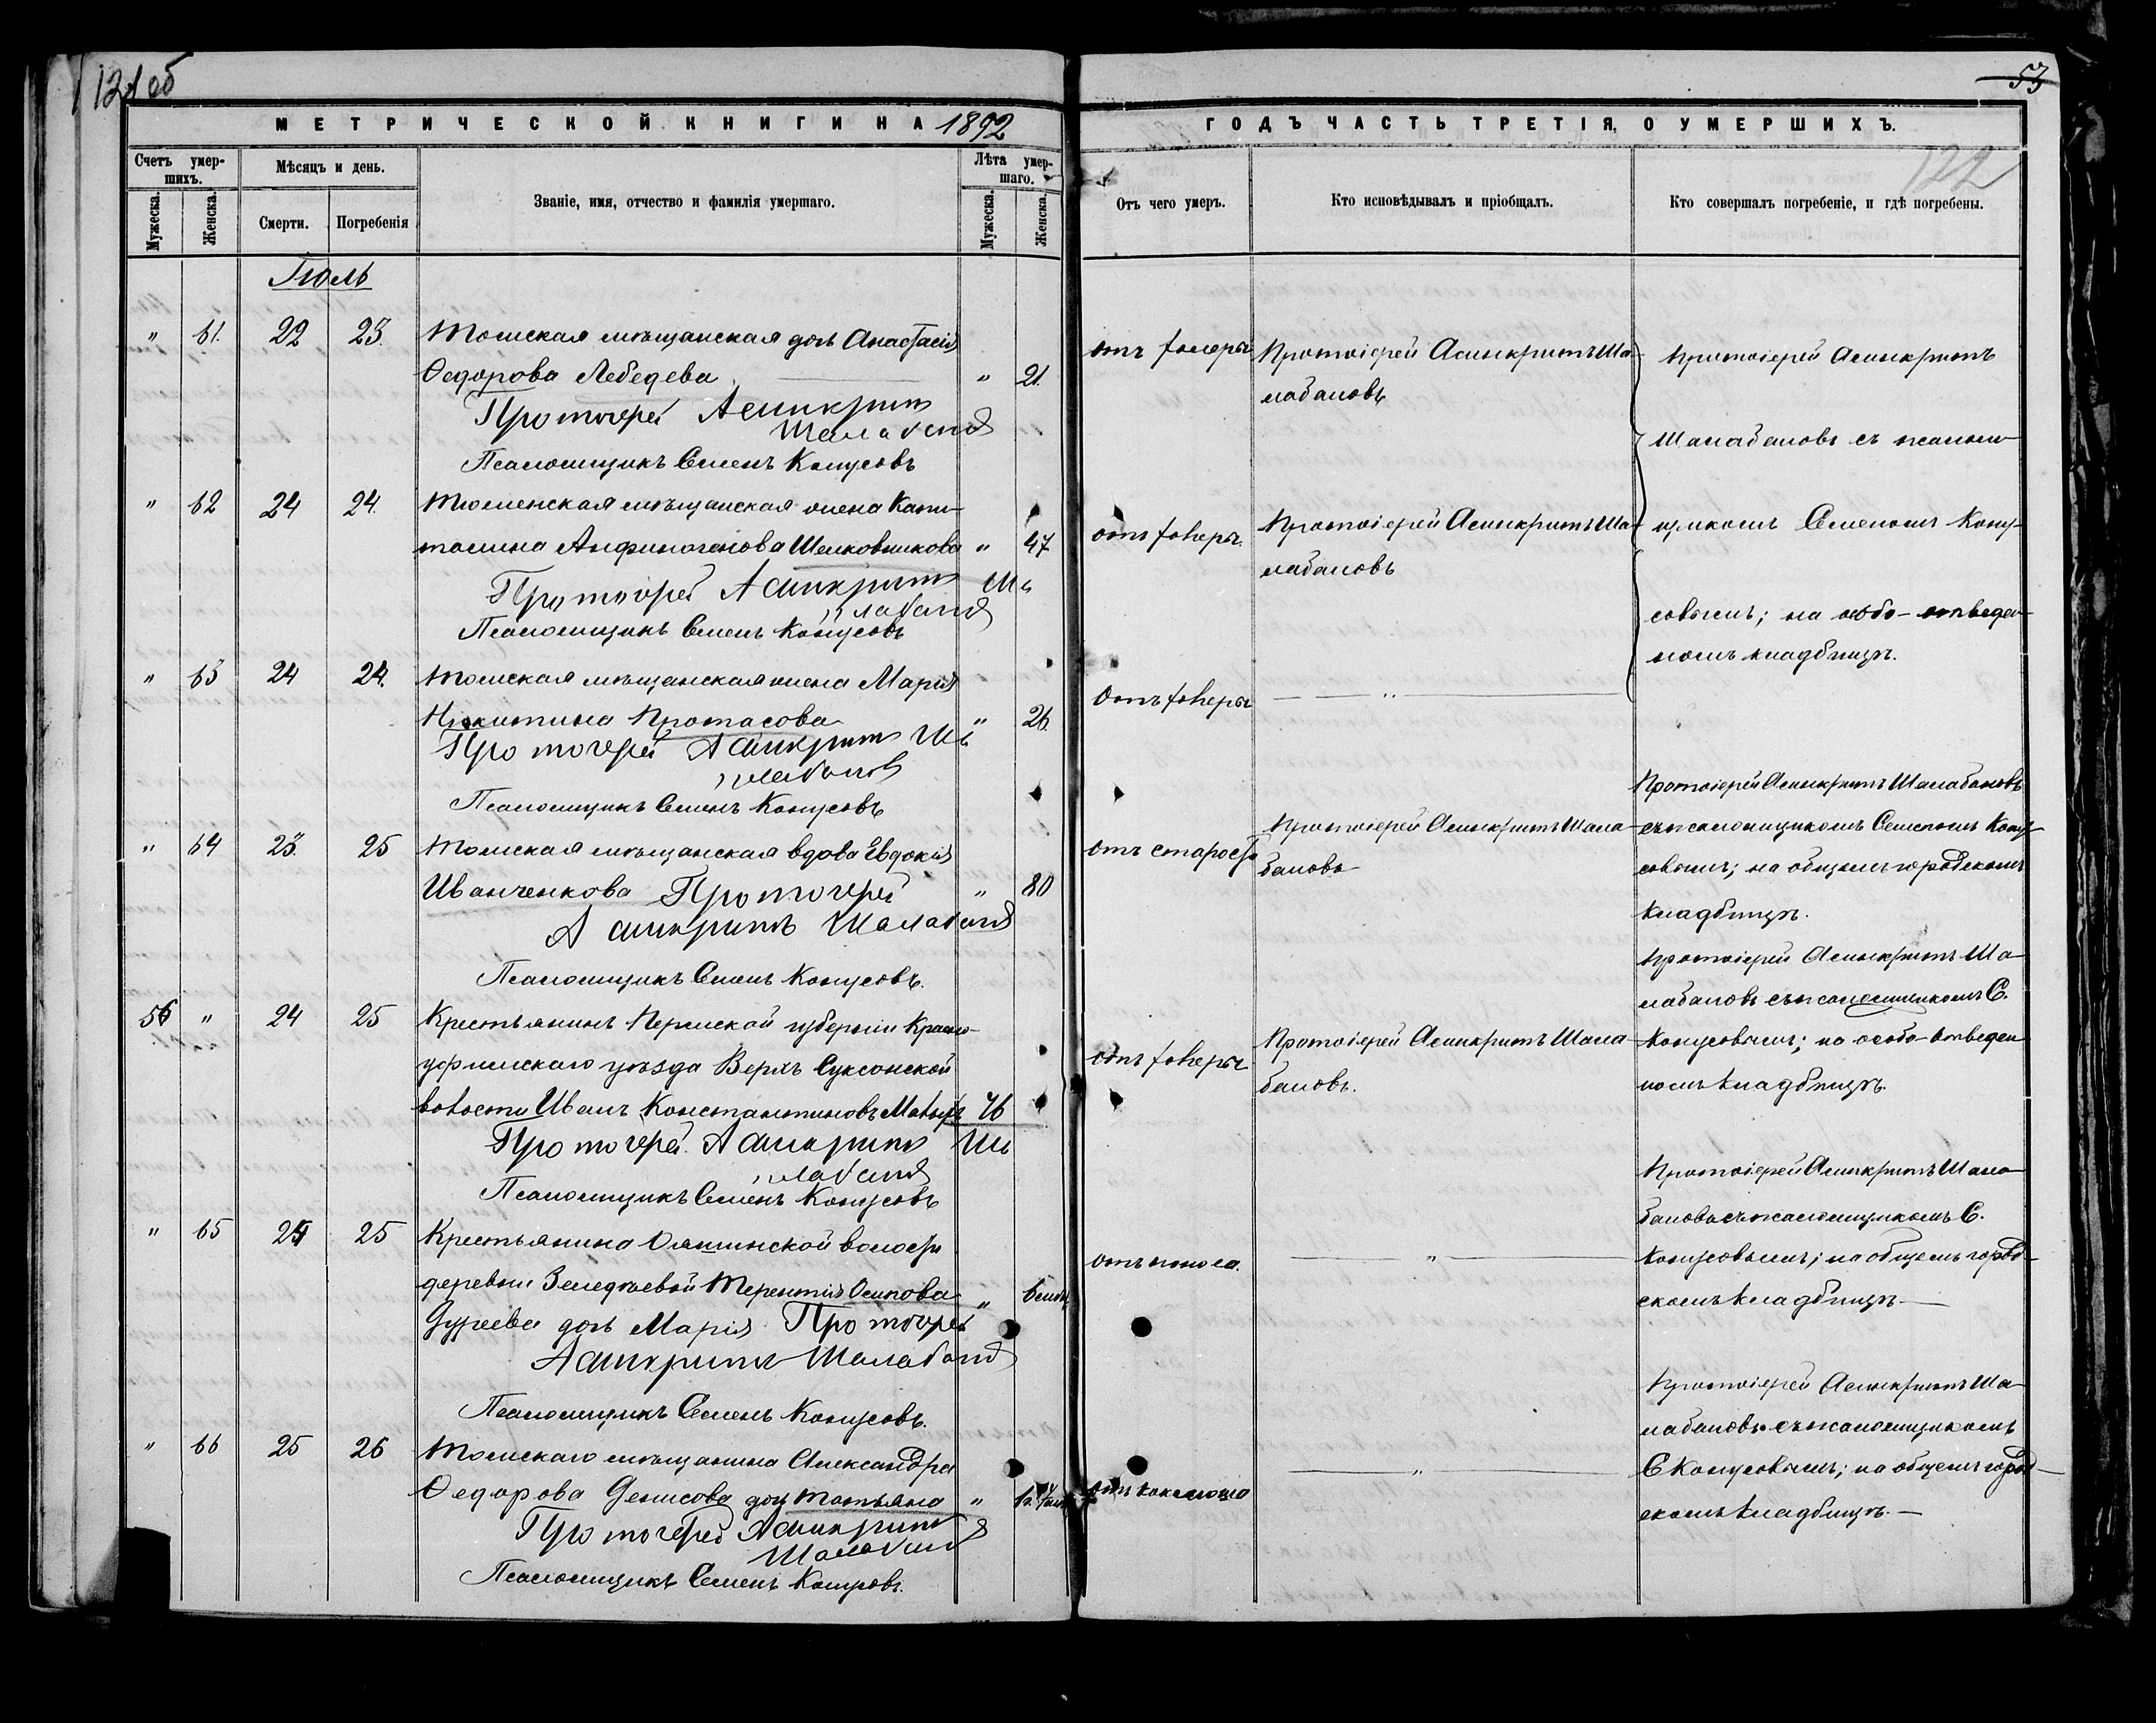 121 об
53
122
МЕТРИЧЕСКОЙ КНИГИ НА 1892
ГОДЪ ЧАСТЬ ТРЕТІЯ, О УМЕРШИХЪ.
Счетъ умер-
шихъ.
Мужеска.
Женска.
Мѣсяцъ и день.
Смерти.
Погребенія
Званіе, имя, отчество и фамилія умершаго.
Лѣта умер-
шаго.
Мужеска.
Женска.
Отъ чего умеръ.
Кто исповѣдывалъ и пріобщалъ.
Кто совершалъ погребеніе, и гдѣ погребены.
Іюль
" 61. 22 23. Томская мѣщанская дочь Анастасія
Ѳедорова Лебедева. " 21.
Протоіерей Асинкритъ
Шалабановъ
Псаломщикъ Семенъ Конусовъ
отъ холеры
Протоіерей Асинкритъ Ша-
лабановъ
" 62 24 24. Тюменская мѣщанская жена Капи-
толина Анфиногенова Шелковникова " 47
Протоіерей Асинкритъ Ша
лабановъ
Псаломщикъ Семенъ Конусовъ
отъ холеры.
Протоіерей Асинкритъ Ша-
лабановъ
" 63 24 24. Томская мѣщанская жена Марія
Никитина Протасова " 26.
Протоіерей Асинкритъ Ша
лабановъ
Псаломщикъ Семенъ Конусовъ
Отъ холеры
"
Протоіерей Асинкритъ
Шалабановъ съ псаломщ-
щикомъ Семеномъ Кону-
совымъ; на особо-отведен-
номъ кладбищѣ.
" 64 23. 25 Томская мѣщанская вдова Евдокія
Иванченкова Протоіерей " 80
Асинкритъ Шалабановъ
Псаломщикъ Семенъ Конусовъ.
отъ старости
Протоіерей Асинкритъ Шала-
бановъ
Протоіерей Асинкритъ Шалабановъ
съ псаломщикомъ Семеномъ Кону-
совымъ; на общемъ городскомъ
кладбищѣ.
56 " 24 25 Крестьянинъ Пермской губерніи Красно-
уфимскаго уѣзда Верхъ Суксонской
волости Иванъ Константиновъ 46
Протоіерей Асинкритъ Ша
лабановъ
Псаломщикъ Семенъ Конусовъ
отъ холеры
Протоіерей Асинкритъ Шала-
бановъ.
Протоіерей Асинкритъ Ша-
лабановъ съ псаломщикомъ С.
Конусовымъ; на особо-отведен
номъ кладбищѣ.
" 65 24 25 Крестьянина Ояшинской волости
деревни Терентія Осипова "
дочь Марія Протоіерей
Асинкритъ Шалабановъ
Псаломщикъ Семенъ Конусовъ.
отъ поноса.
"
Протоіерей Асинкритъ Шала-
бановъ съ псаломщикомъ С.
Конусовымъ; на общемъ город-
скомъ кладбищѣ.—
" 66 25 26 Томскаго мѣщанина Александра
Ѳедорова Денисова дочь Татьяна "
Протоіерей Асинкритъ
Шалабановъ
Псаломщикъ Семенъ Конусовъ.
отъ коклюша
"
Протоіерей Асинкритъ Ша-
лабановъ съ псаломщикомъ
С Конусовымъ; на общемъ город-
скомъ кладбищѣ.—